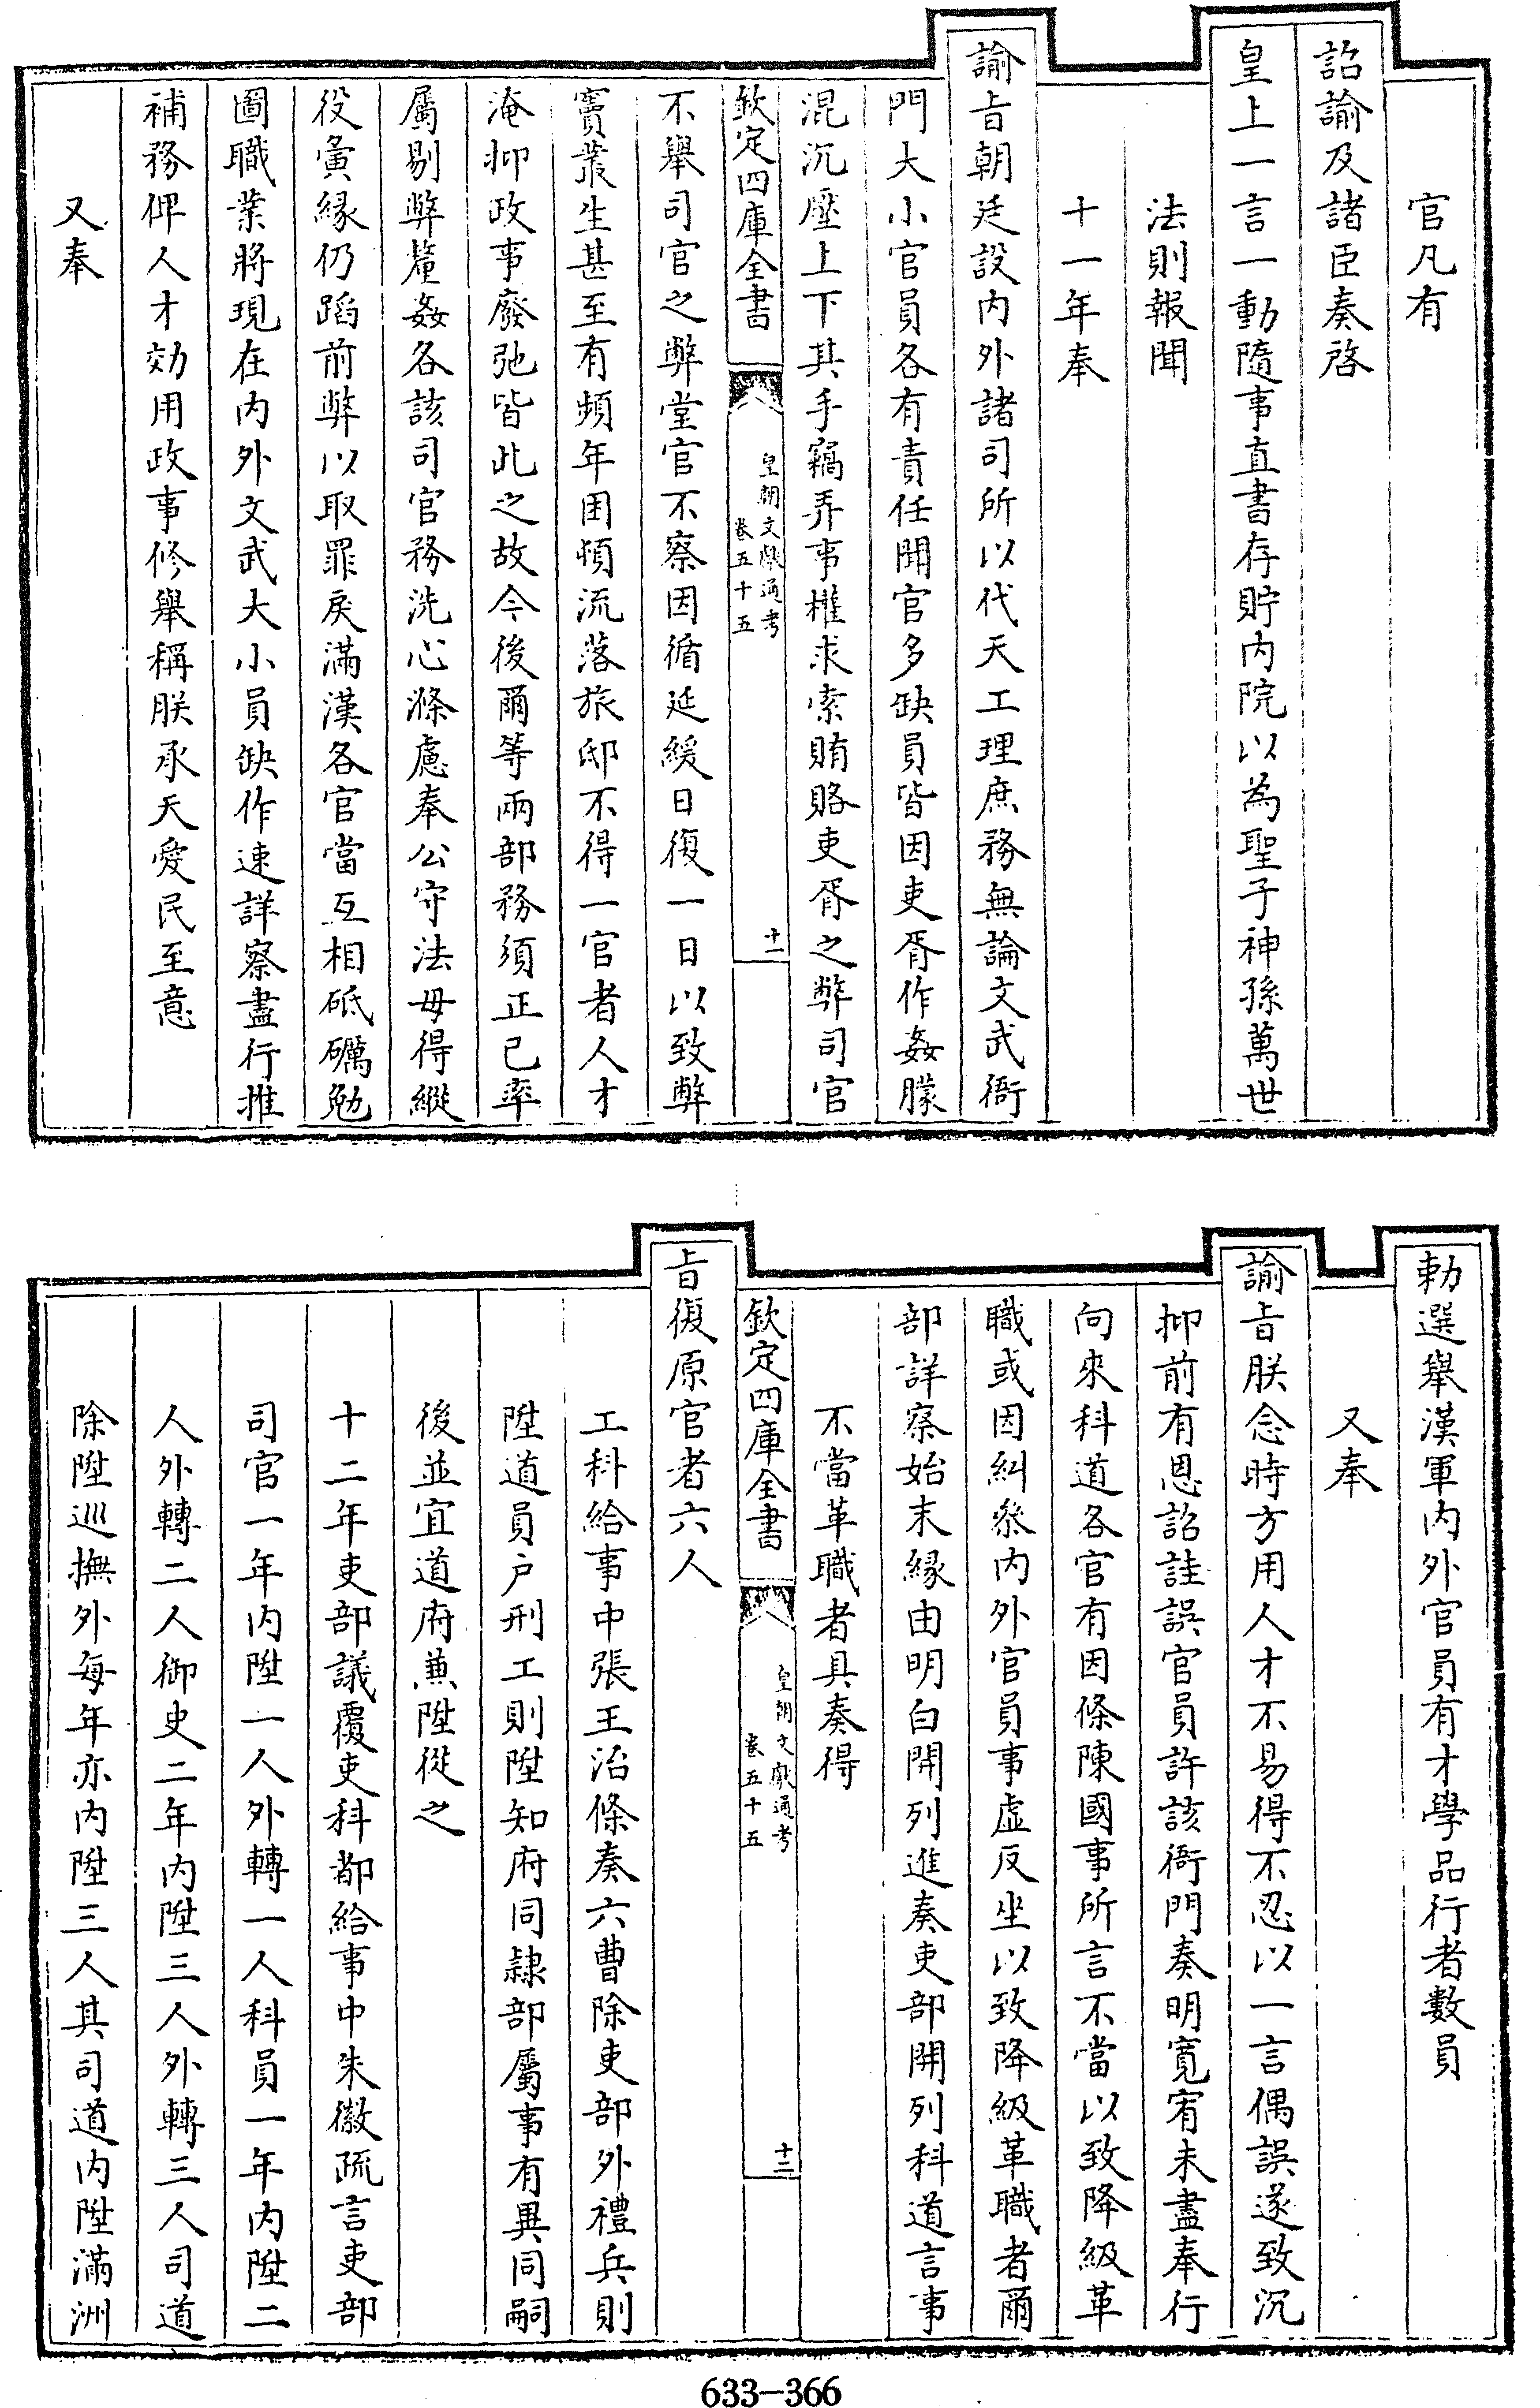 官凡有
詔諭及諸臣奏啓
皇上一言一動隨事直書存貯内院以為聖子神孫萬世
法則報聞
十一年奉
諭㫖朝廷設内外諸司所以代天工理庶務無論文武衙
門大小官員各有責任聞官多缺員皆因吏胥作姦朦
混沉壓上下其手竊弄事權求索賄賂吏胥之弊司官
欽定四庫全書
皇朝文獻通考
卷五十五
十一
不舉司官之弊堂官不察因循延緩日復一日以致弊
竇叢生甚至有頻年困頓流落旅邸不得一官者人才
淹抑政事廢弛皆此之故今後爾等兩部務須正已率
屬剔弊釐姦各該司官務洗心滌慮奉公守法毋得縱
役夤縁仍蹈前弊以取罪戾滿漢各官當互相砥礪勉
圖職業將現在内外文武大小員缺作速詳察盡行推
補務俾人才効用政事修舉稱朕承天愛民至意
又奉
勅選舉漢軍内外官員有才學品行者數員
又奉
諭㫖朕念時方用人才不易得不忍以一言偶誤遂致沉
抑前有恩詔詿誤官員許該衙門奏明寛宥未盡奉行
向來科道各官有因條陳國事所言不當以致降級革
職或因糾叅内外官員事虚反坐以致降級革職者爾
部詳察始末縁由明白開列進奏吏部開列科道言事
不當革職者具奏得
欽定四庫全書
皇朝文獻通考
卷五十五
十二
㫖復原官者六人
工科給事中張王治條奏六曹除吏部外禮兵則
陞道員户刑工則陞知府同隷部屬事有異同嗣
後並宜道府兼陞從之
十二年吏部議覆吏科都給事中朱徽疏言吏部
司官一年内陞一人外轉一人科員一年内陞二
人外轉二人御史二年内陞三人外轉三人司道
除陞巡撫外每年亦内陞三人其司道内陞滿洲
633-366